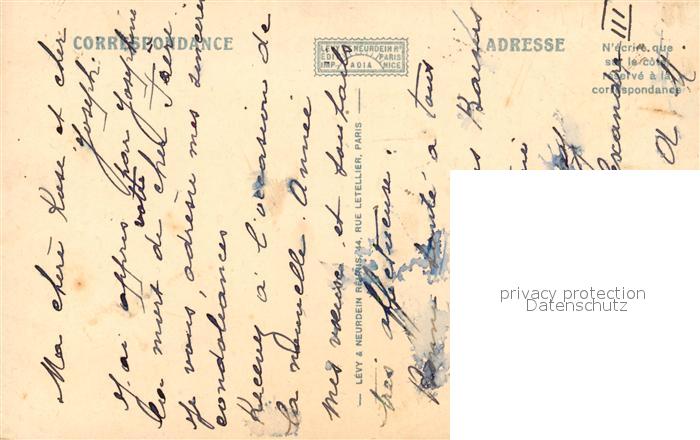 CORRESPONDANCE
LEVY & NEURDEIN RÉUNIS
EDIT PARIS
IMP. ADIA NICE
ADRESSE
N'écrire que
sur le côté
réservé à la
correspondance
— LÉVY & NEURDEIN RÉUNIS, 44, RUE LETELLIER, PARIS —
Ma chère Rose et cher
Joseph.
J'ai appris par Josephine
la mort de votre cher Frère
je vous adresse mes sincères
condoléances
Recevez à l'occasion de
la nouvelle Année
mes voeux et souhaits
très affectueuse.
Bonne Santé à tous
Baisers
III
privacy protection
Datenschutz